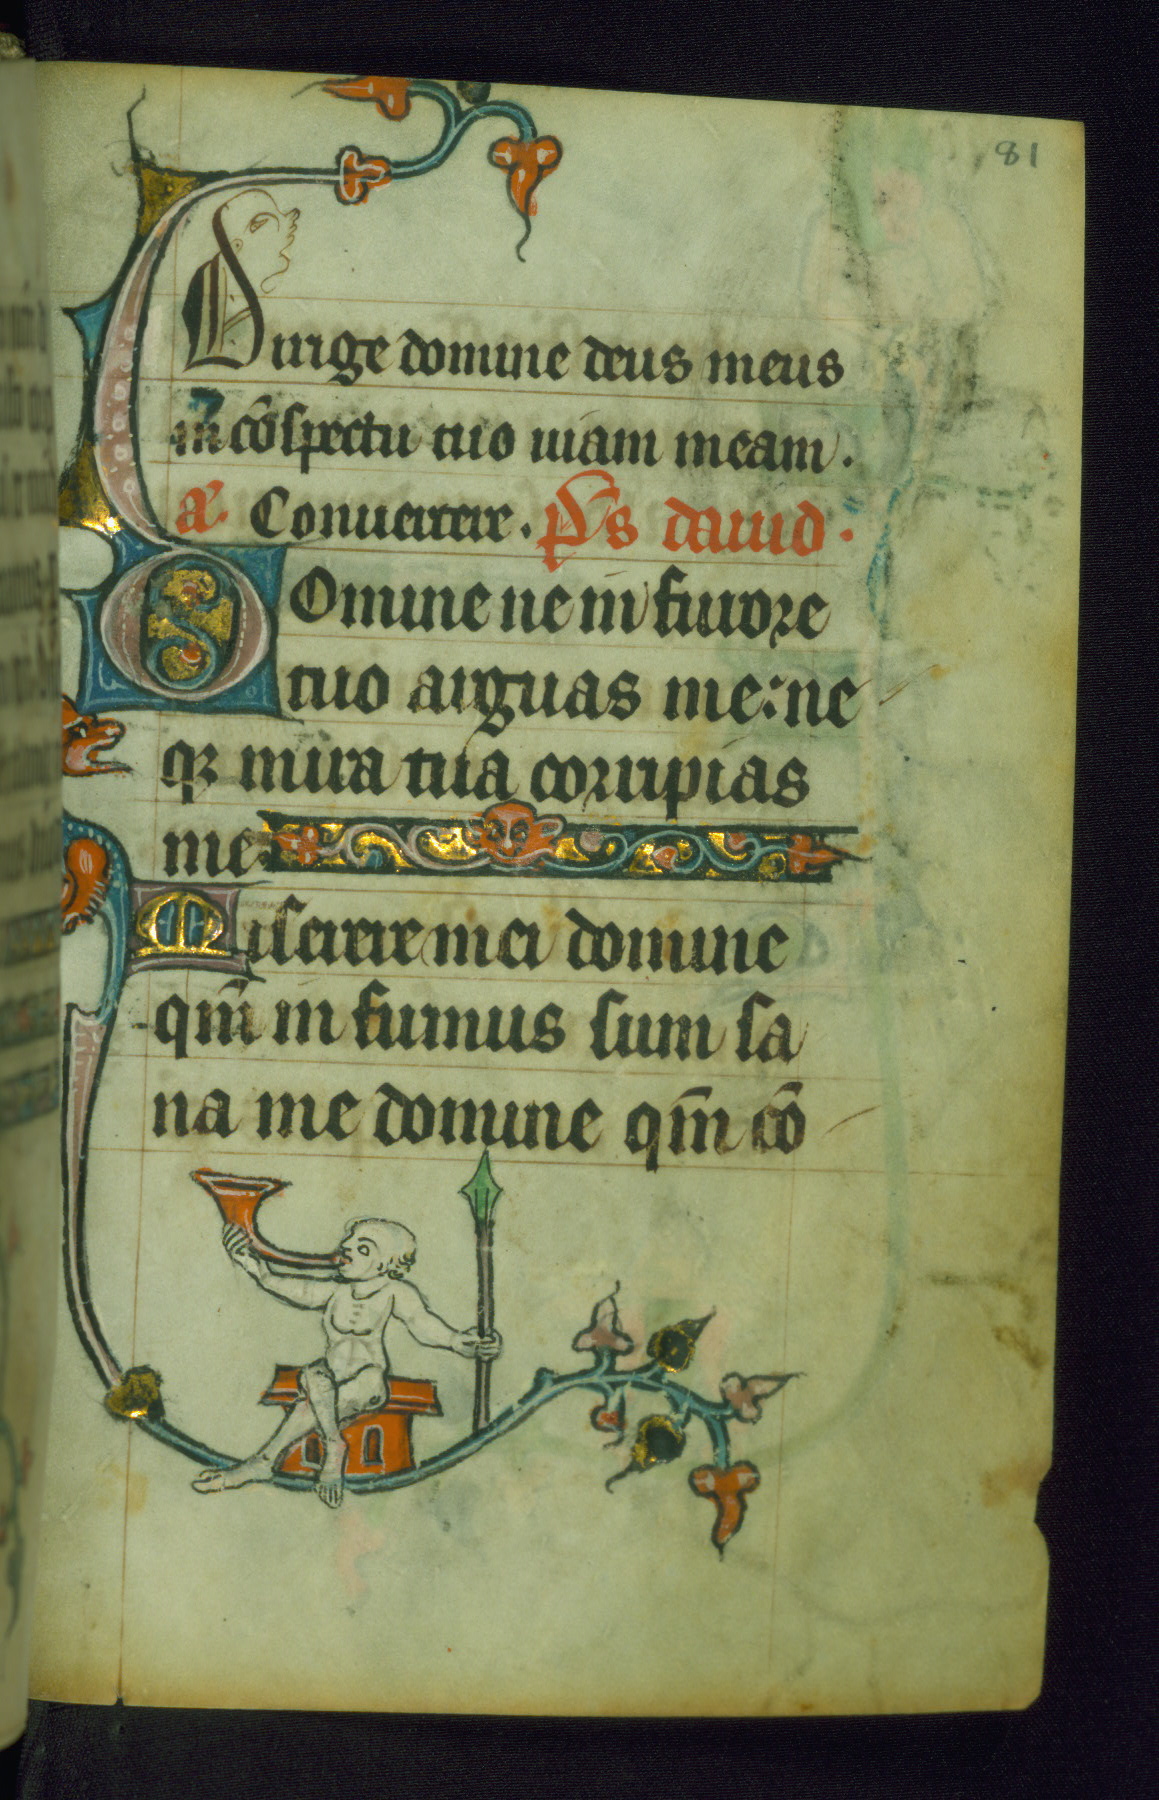 81
Dirige domine deus meus
in cōspectu tuo uiam meam.
a̅. Conuertere. ps̅ dauid.
Domine ne in furore
tuo arguas me: ne
qꝫ in ira tua corripias
me.
Miserere mei domine
qm̅ infirmus sum sa
na me domine qm̅ cō